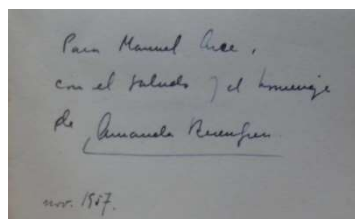 Para Manuel Arce,
con el saludo y el homenaje
de Amanda Berenguer
nov. 1957.